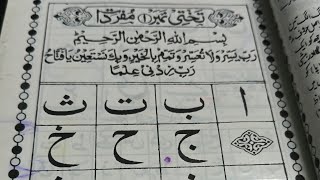 تختی نمبر ۱ مفردات
بِسْمِ اللهِ الرَّحْمٰنِ الرَّحِيْمِ
رَبِّ يَسِّرْ وَلَا تُعَسِّرْ وَتَمِّمْ بِالْخَيْرِ وَبِكَ نَسْتَعِيْنُ يَا فَتَّاحُ
رَبِّ زِدْنِيْ عِلْمًا
ا ب ت ث
ج ح خ